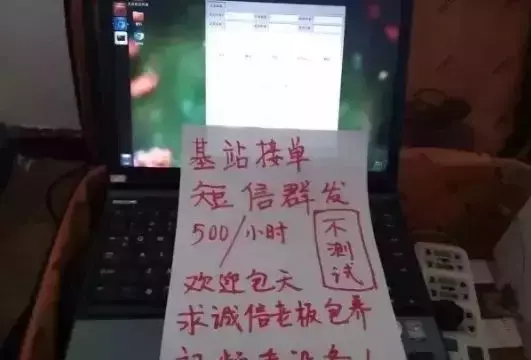 基站接单
短信群发
500/小时
不测试
欢迎包天
求诚信老板包养